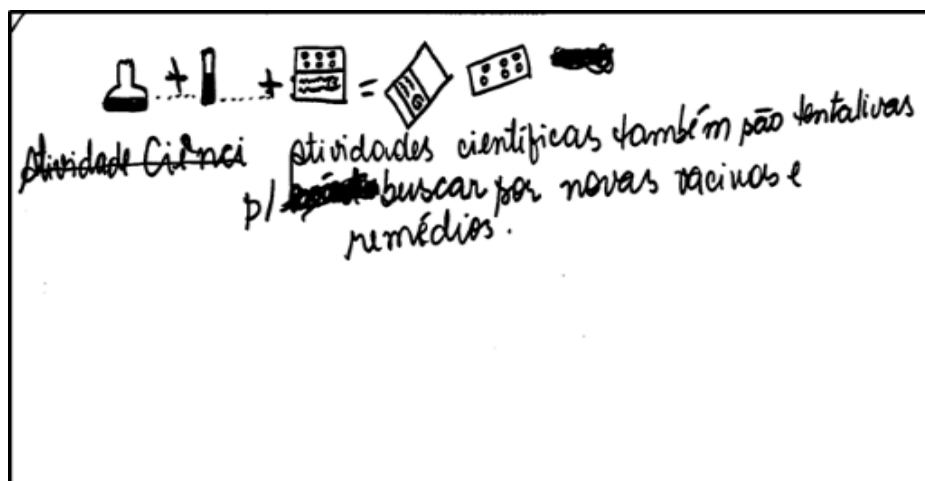 Atividade Cienci Atividades científicas também são tentativas
p/ buscar por novas vacinas e
remédios.